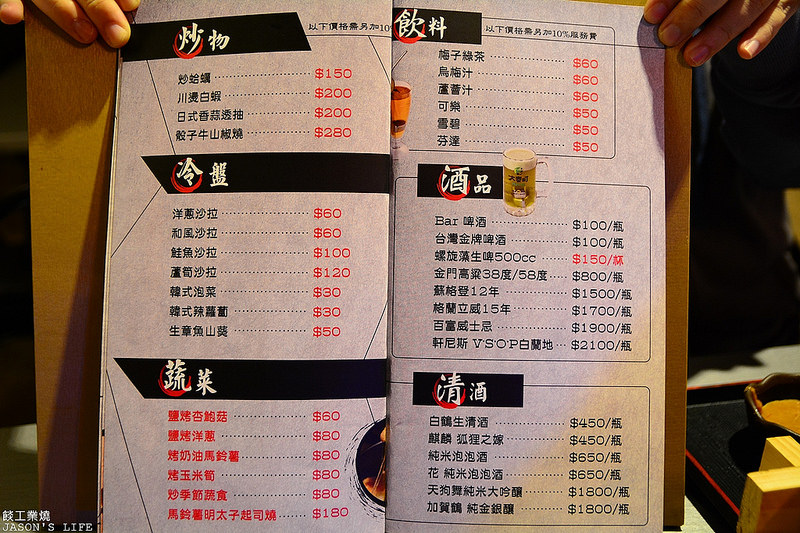 炒物
以下價格需另加10%
炒蛤蠣 $150
川燙白蝦 $200
日式香蒜透抽 $200
骰子牛山椒燒 $280
冷盤
洋蔥沙拉 $60
和風沙拉 $60
鮭魚沙拉 $100
蘆筍沙拉 $120
韓式泡菜 $30
韓式辣蘿蔔 $30
生章魚山葵 $50
蔬菜
鹽烤杏鮑菇 $60
鹽烤洋蔥 $80
烤奶油馬鈴薯 $80
烤玉米筍 $80
炒季節蔬食 $80
馬鈴薯明太子起司燒 $180
飲料
以下價格需另加10%服務費
梅子綠茶 $60
烏梅汁 $60
蘆薈汁 $60
可樂 $50
雪碧 $50
芬達 $50
酒品
Bar 啤酒 $100/瓶
台灣金牌啤酒 $100/瓶
螺旋藻生啤500cc $150/杯
金門高粱38度/58度 $800/瓶
蘇格登12年 $1500/瓶
格蘭立威15年 $1700/瓶
百富威士忌 $1900/瓶
軒尼斯 V.S.O.P白蘭地 $2100/瓶
清酒
白鶴生清酒 $450/瓶
麒麟 狐狸之嫁 $450/瓶
純米泡泡酒 $650/瓶
花 純米泡泡酒 $650/瓶
天狗舞純米大吟釀 $1800/瓶
加賀鶴 純金銀釀 $1800/瓶
餤工業燒
JASON'S LIFE